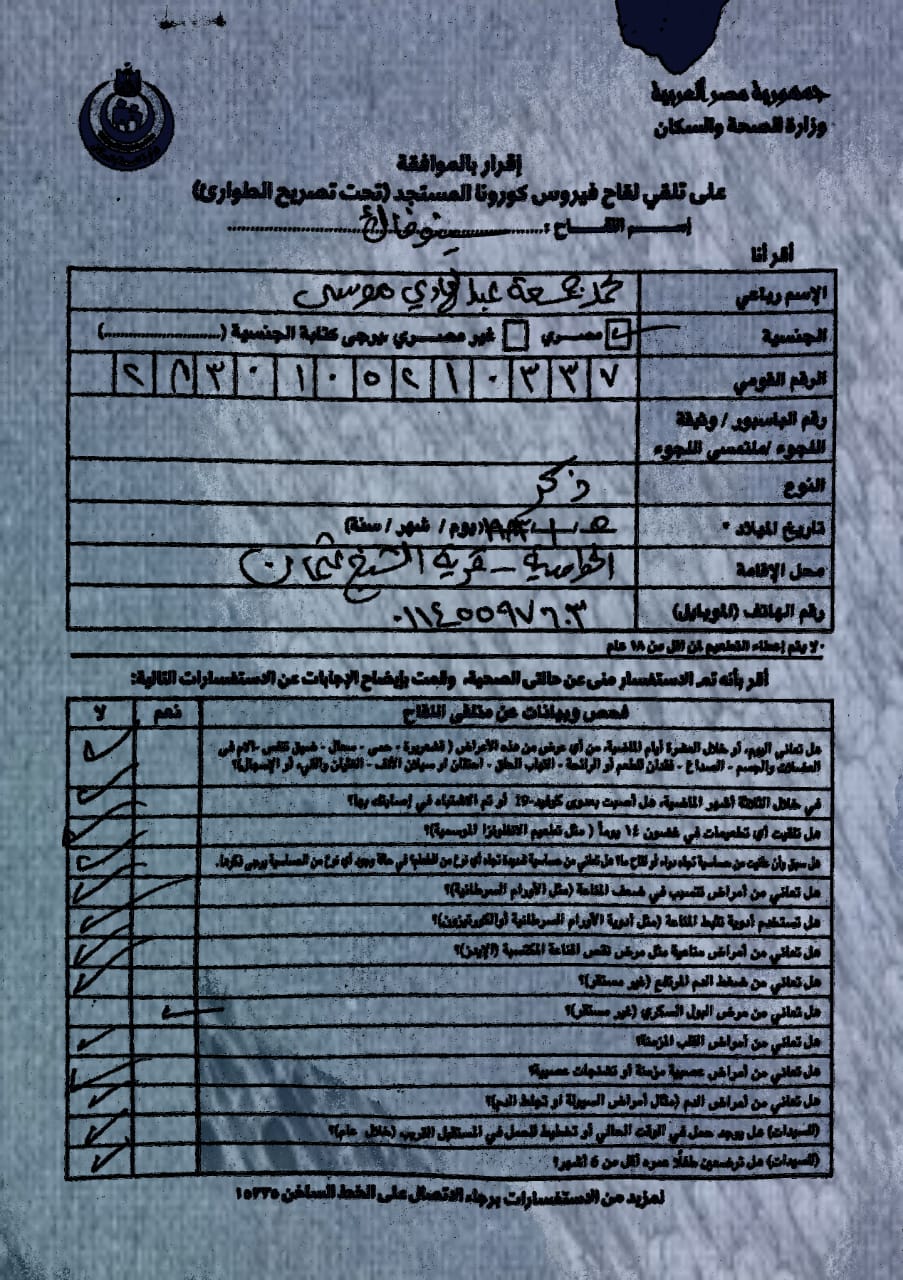 جمهورية مصر العربية
وزارة الصحة والسكان
إقرار بالموافقة
على تلقي لقاح فيروس كورونا المستجد (تحت تصريح الطوارئ)
إسم اللقاح: سينوفاك
أقر أنا
الإسم رباعي محمد جمعة عبد الهادي موسى
الجنسية مصري غير مصري يرجى كتابة الجنسية (....................)
الرقم القومي ٢٨٣٠١٠٥٢١٠٣٣٧
رقم الباسبور / وثيقة
اللجوء / ملتمسي اللجوء
النوع ذكر
تاريخ الميلاد * (يوم / شهر / سنة)
محل الإقامة قرية الشيخ عثمان
رقم الهاتف (الموبايل) ٠١١٤٥٥٩٧٦٠٣
* لا يتم إعطاء التطعيم لمن أقل من ١٨ عام
أقر بأنه تم الاستفسار مني عن حالتي الصحية، وقمت بإيضاح الإجابات عن الاستفسارات التالية:
فحص وبيانات عن متلقي اللقاح نعم لا
هل تعاني اليوم، أو خلال العشرة أيام الماضية، من أي عرض من هذه الأعراض ( قشعريرة - حمى - سعال - ضيق تنفس - آلام في
العضلات والجسم - الصداع - فقدان للطعم أو الرائحة - التهاب الحلق - احتقان او سيلان الأنف - الغثيان والقيء أو الإسهال)؟
في خلال الثلاثة أشهر الماضية، هل أصبت بعدوى كوفيد-19 أو تم الاشتباه في إصابتك بها؟
هل تلقيت أي تطعيمات في غضون ١٤ يوماً ( مثل تطعيم الانفلونزا الموسمية)؟
هل سبق وأن عانيت من حساسية تجاه دواء أو لقاح ما؟ هل تعاني من حساسية شديدة تجاه أي نوع من الأطعمة؟ في حالة وجود أي نوع من الحساسية يرجى ذكرها.
هل تعاني من أمراض تتسبب في ضعف المناعة (مثل الأورام السرطانية)؟
هل تستخدم أدوية تثبط المناعة (مثل أدوية الأورام السرطانية أو الكورتيزون)؟
هل تعاني من أمراض مناعية مثل مرض نقص المناعة المكتسبة (الإيدز)؟
هل تعاني من ضغط الدم المرتفع (غير مستقر)؟
هل تعاني من مرض البول السكري (غير مستقر)؟
هل تعاني من أمراض القلب المزمنة؟
هل تعاني من أمراض عصبية مزمنة أو تشنجات عصبية؟
هل تعاني من أمراض الدم (مثال أمراض السيولة أو تجلط الدم)؟
(للسيدات) هل يوجد حمل في الوقت الحالي أو تخطيط للحمل في المستقبل القريب (خلال عام)؟
(للسيدات) هل ترضعين طفلًا عمره أقل من 6 أشهر؟
لمزيد من الاستفسارات برجاء الاتصال على الخط الساخن ١٥٣٣٥